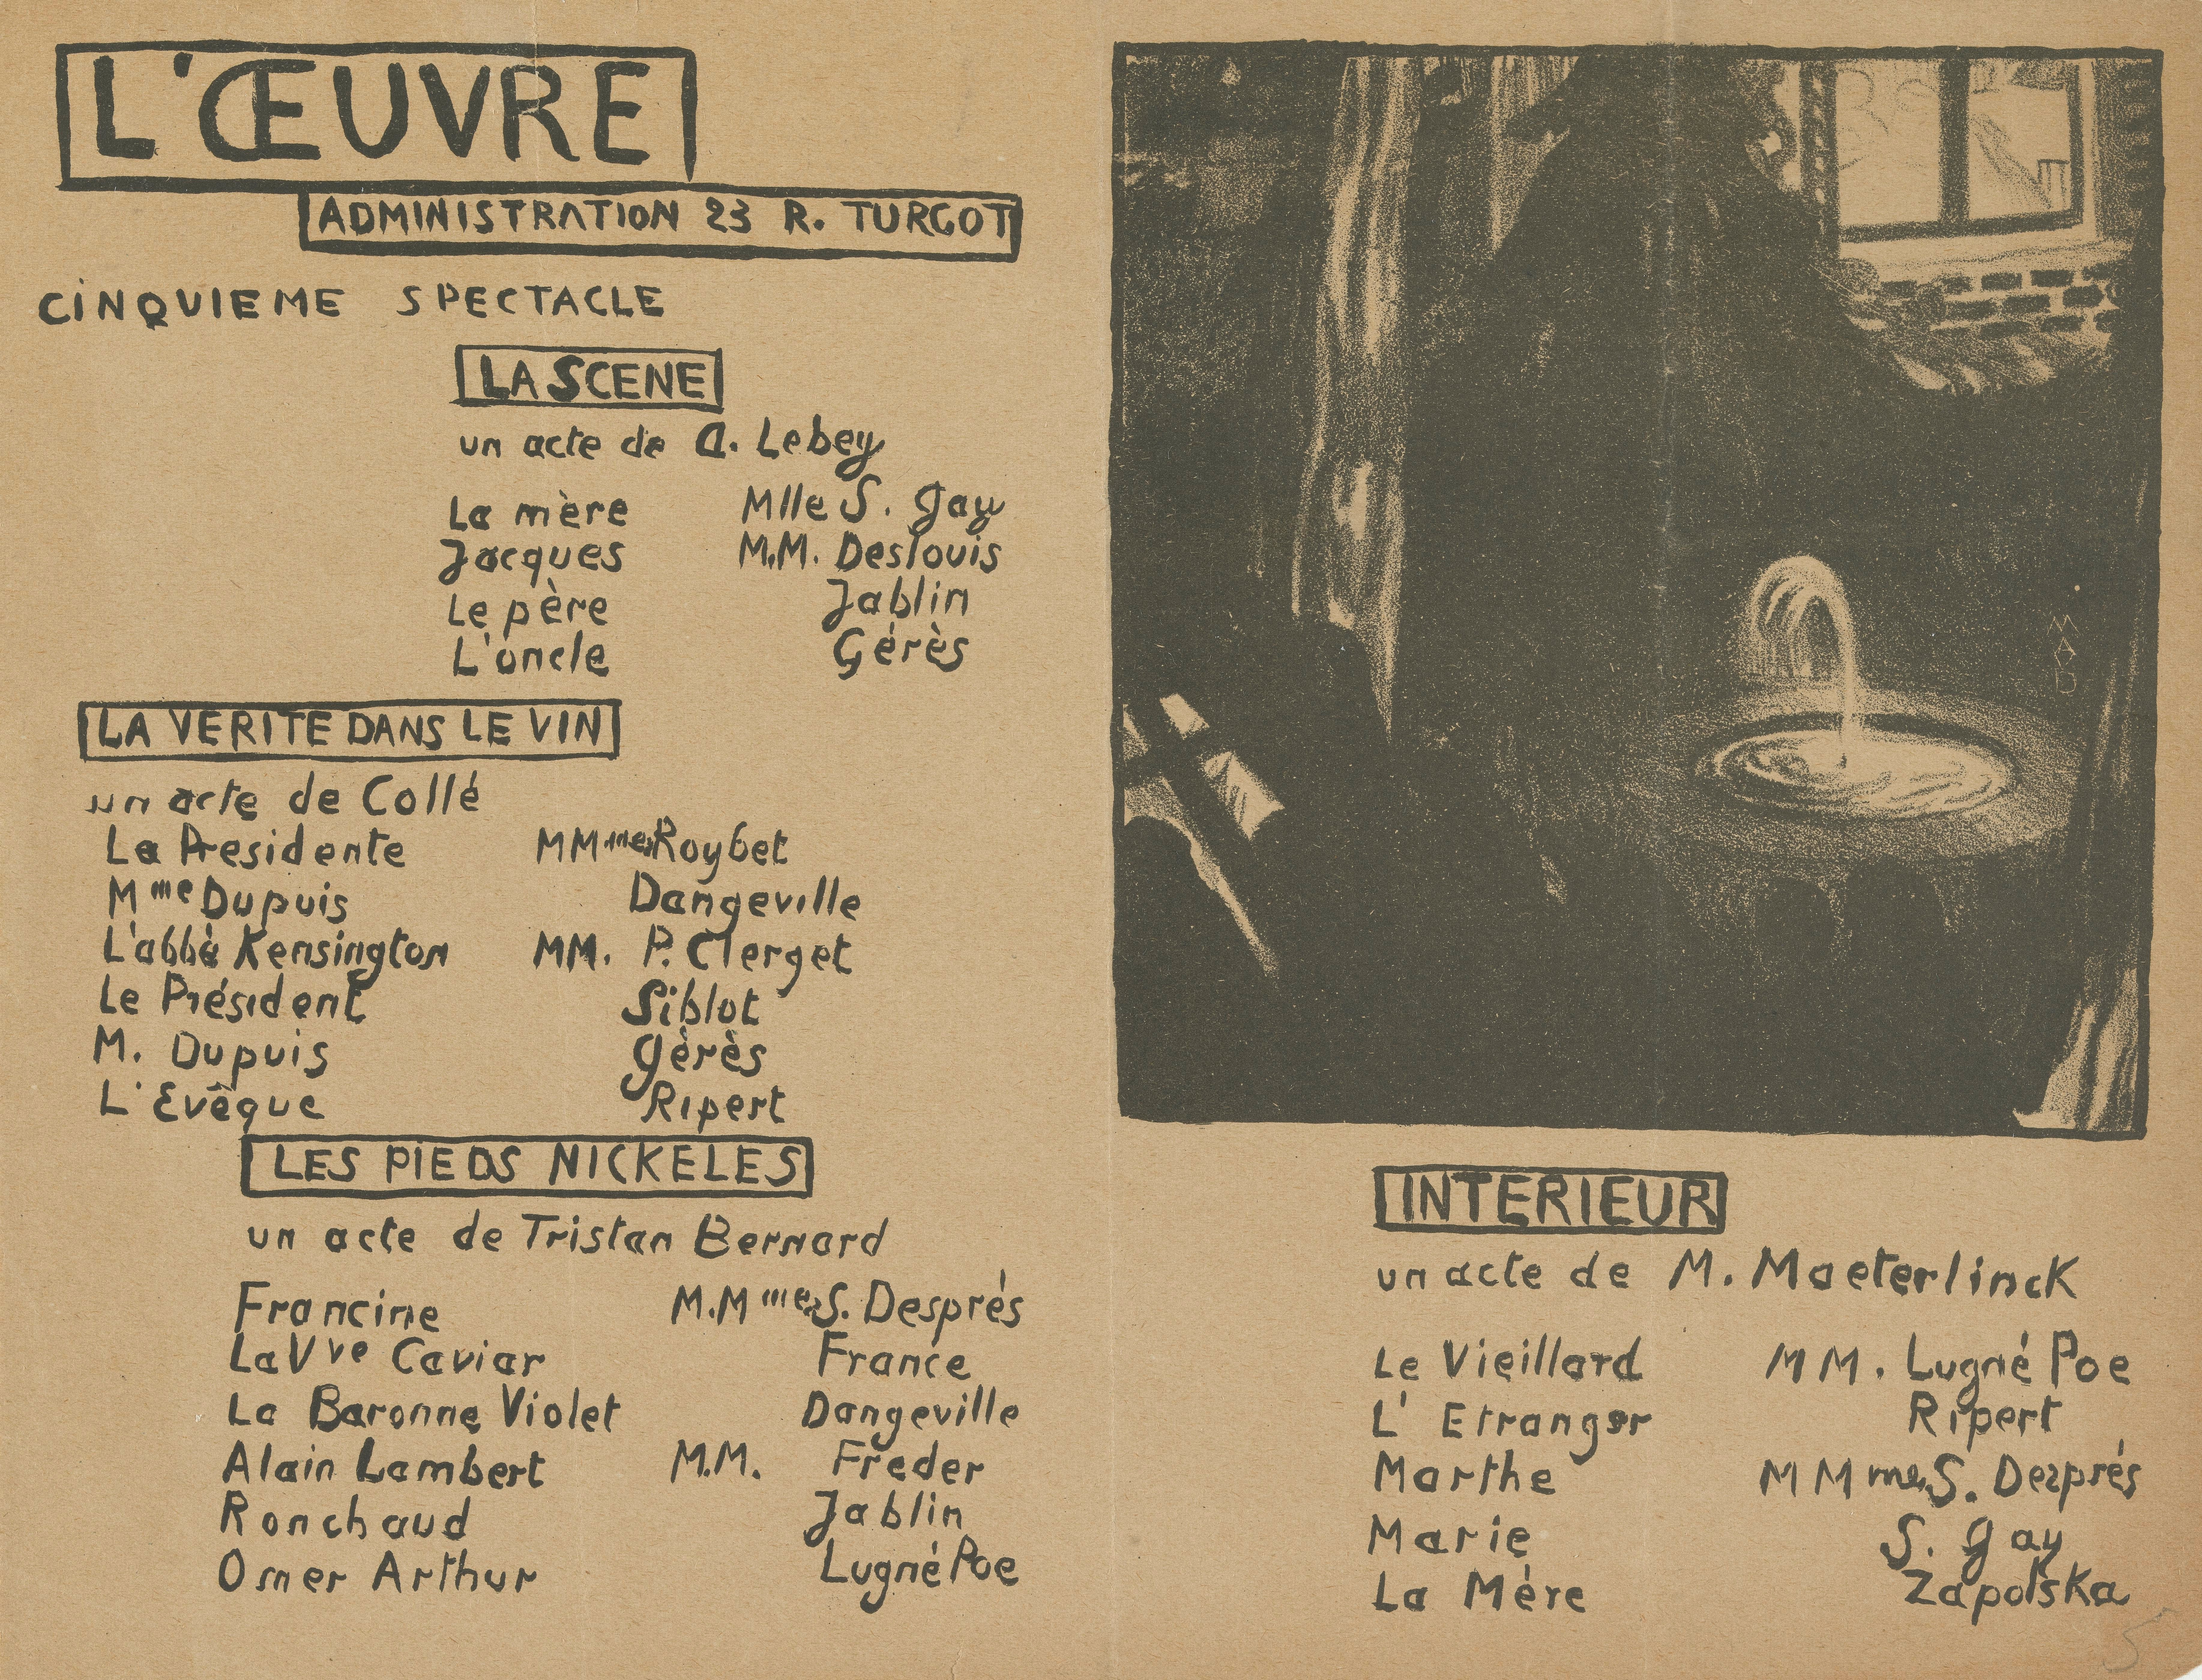 L'ŒUVRE
ADMINISTRATION 23 R. TURGOT
CINQUIEME SPECTACLE
LA SCENE
un acte de A. Lebey
La mère Mlle S. Gay
Jacques M.M. Deslouis
Le père Jablin
L'oncle Gérès
LA VERITE DANS LE VIN
un acte de Collé
La Presidente MMmes Roybet
Mme Dupuis Dangeville
L'abbé Kensington MM. P. Clerget
Le Président Siblot
M. Dupuis Gérès
L'Evêque Ripert
LES PIEDS NICKELES
un acte de Tristan Bernard
Francine M.Mmes S. Després
La Vve Caviar France
La Baronne Violet Dangeville
Alain Lambert M.M. Freder
Ronchaud Jablin
Omer Arthur Lugné Poe
MAD
INTERIEUR
un acte de M. Maeterlinck
Le Vieillard MM. Lugné Poe
L' Etranger Ripert
Marthe MMmes S. Després
Marie S. Gay
La Mère Zapolska
5